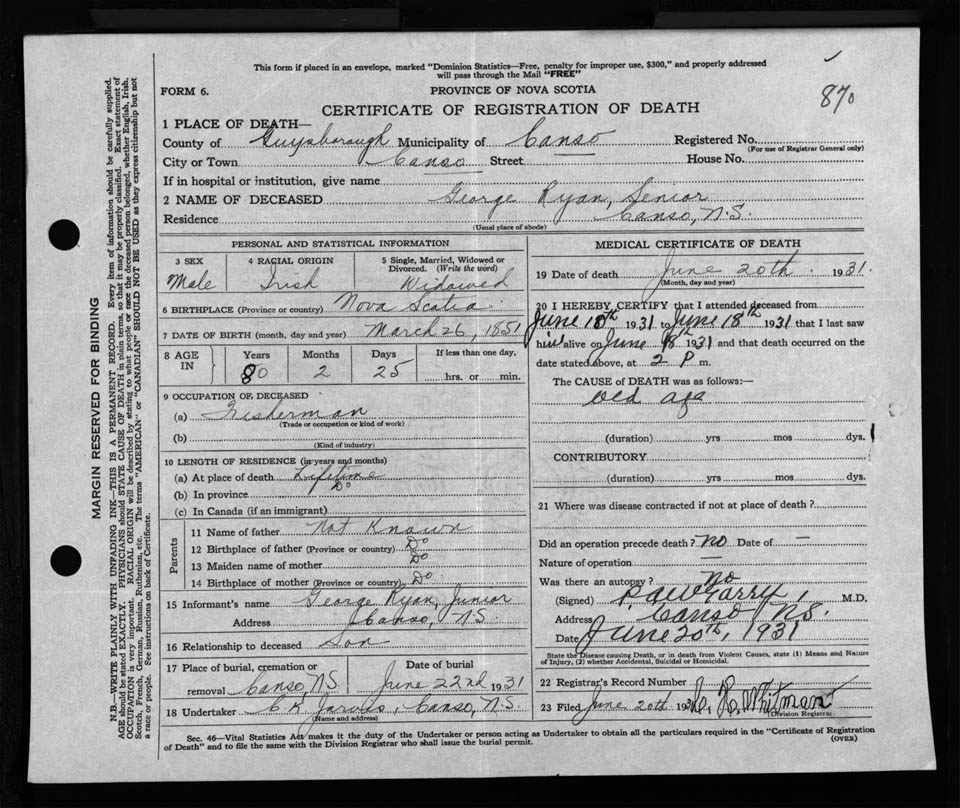 This form if placed in an envelope, marked "Dominion Statistics—Free, penalty for improper use, $300," and properly addressed
will pass through the Mail "FREE"
FORM 6.
PROVINCE OF NOVA SCOTIA
870
CERTIFICATE OF REGISTRATION OF DEATH
1 PLACE OF DEATH—
County of Guysborough Municipality of Canso Registered No.
(For use of Registrar General only)
City or Town Canso Street House No.
If in hospital or institution, give name
2 NAME OF DECEASED George Ryan, Senior
Residence Canso, N.S.
(Usual place of abode)
PERSONAL AND STATISTICAL INFORMATION
3 SEX 4 RACIAL ORIGIN 5 Single, Married, Widowed or
Divorced. (Write the word)
Male Irish Widowed
6 BIRTHPLACE (Province or country) Nova Scotia
7 DATE OF BIRTH (month, day and year) March 26, 1851
8 AGE IN Years Months Days If less than one day,
80 2 25 hrs. or min.
9 OCCUPATION OF DECEASED
(a) Fisherman
(Trade or occupation or kind of work)
(b)
(Kind of industry)
10 LENGTH OF RESIDENCE (in years and months)
(a) At place of death Lifetime
(b) In province Do
(c) In Canada (if an immigrant)
Parents
11 Name of father Not Known
12 Birthplace of father (Province or country) Do
13 Maiden name of mother Do
14 Birthplace of mother (Province or country) Do
15 Informant's name George Ryan, Junior
Address Canso, N.S.
16 Relationship to deceased Son
17 Place of burial, cremation or Date of burial
removal Canso, N.S. June 22nd 1931
18 Undertaker C.K. Jarvis, Canso, N.S.
(Name and address)
MEDICAL CERTIFICATE OF DEATH
19 Date of death June 20th 1931.
(Month, day and year)
20 I HEREBY CERTIFY that I attended deceased from
June 10th 1931 to June 18th 1931 that I last saw
him alive on June 18th 1931 and that death occurred on the
date stated above, at 2 P m.
The CAUSE OF DEATH was as follows:—
old age
(duration) yrs mos dys.
CONTRIBUTORY
(duration) yrs mos dys.
21 Where was disease contracted if not at place of death?
Did an operation precede death? No Date of —
Nature of operation —
Was there an autopsy? No
(Signed) M.D.
Address Canso N.S.
Date June 20th, 1931
State the Disease causing Death, or in death from Violent Causes, state (1) Means and Nature
of Injury, (2) whether Accidental, Suicidal or Homicidal.
22 Registrar's Record Number
23 Filed June 20th 1931 H. Whitman
Division Registrar
Sec. 46—Vital Statistics Act makes it the duty of the Undertaker or person acting as Undertaker to obtain all the particulars required in the "Certificate of Registration
of Death" and to file the same with the Division Registrar who shall issue the burial permit. (OVER)
MARGIN RESERVED FOR BINDING
N.B.—WRITE PLAINLY WITH UNFADING INK—THIS IS A PERMANENT RECORD. Every item of information should be carefully supplied.
AGE should be stated EXACTLY. PHYSICIANS should STATE CAUSE OF DEATH in plain terms, so that it may be properly classified. Exact statement of
OCCUPATION is very important. RACIAL ORIGIN will be described by stating to what people or race the deceased person belonged, whether English, Irish,
Scotch, French, German, Russian, Ruthenian, etc. The terms "AMERICAN" or "CANADIAN" SHOULD NOT BE USED as they express citizenship but not
a race or people. See instructions on back of Certificate.